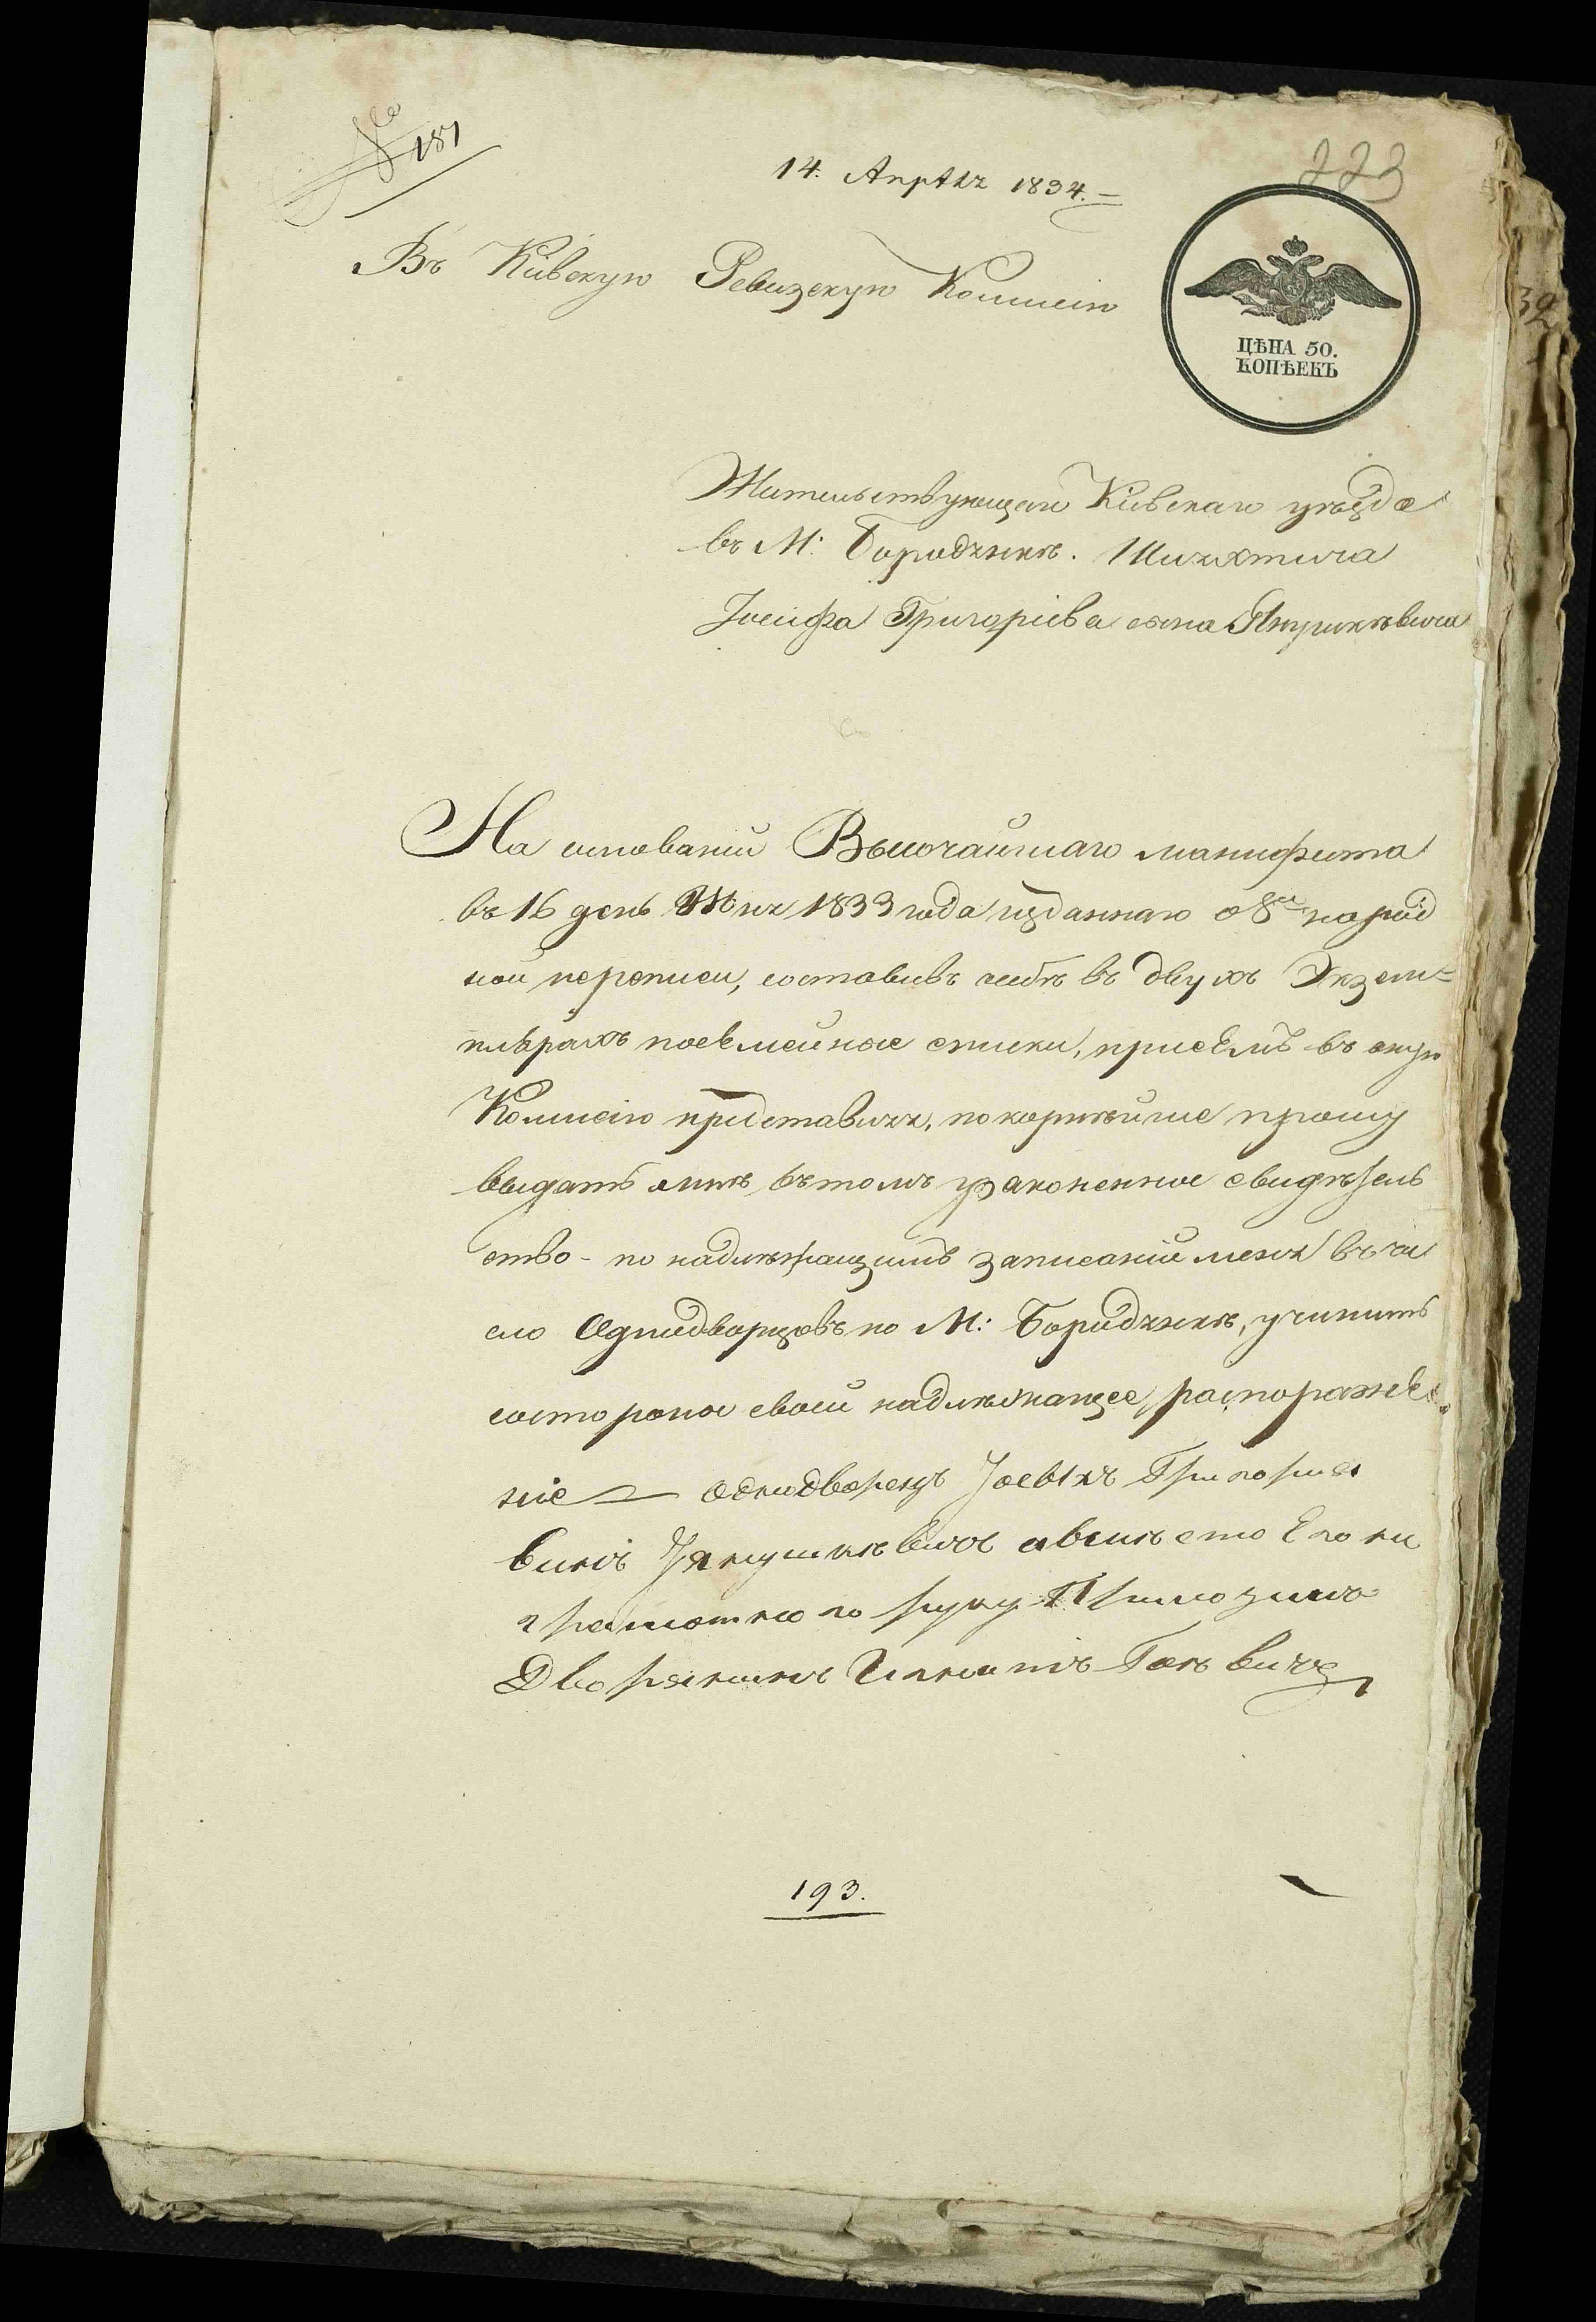 № 181
14. Апрѣля 1834.
223
Въ Кіевскую Ревизскую Коммисію
ЦѢНА 50.
КОПѢЕКЪ
32
Жительствующаго Кіевскаго уѣзда
въ М: Бородянкѣ. Шляхтича
Іосифа Григоріева сына Янушкѣвича
На основаніи Высочайшаго манифеста
въ 16 день Іюня 1833 года изданнаго о 8й народ
ной переписи, составивъ себѣ въ двухъ Экзем=
плярахъ посемейные списки, присемъ въ оную
Коммисію представляя, покорнѣйше прошу
выдать мнѣ въ томъ узаконенное свидѣтель
ство - по надлѣжащимъ записаніи меня въ чи
сло Однодворцовъ по М: Бородянкѣ, учинить
состороны своей надлѣжащее распоряже
ніе — однодворецъ Іосыхъ Григориев
Янушкѣвичъ авмѣсто Его ни
грамотного руку Приложилъ
Дворянинъ Игнатій
193.